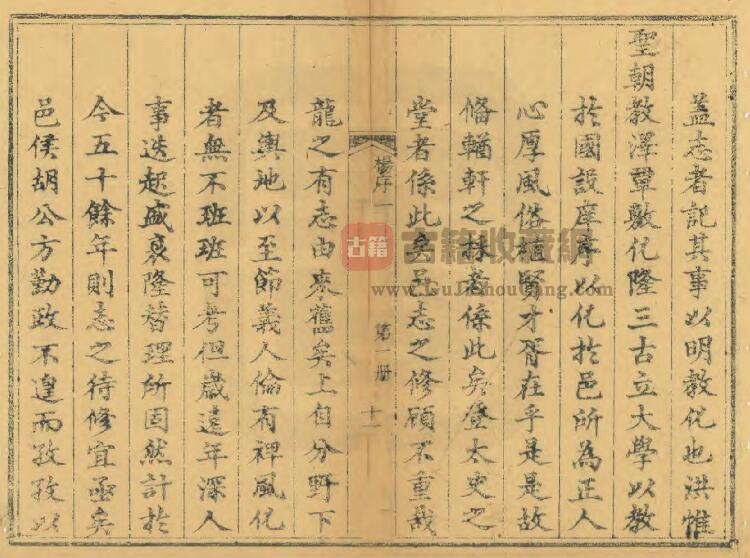 蓋志者記其事以明教化也洪惟
聖朝教澤覃敷化隆三古立大學以教
於國設庠序以化於邑所為正人
心厚風俗植賢才胥在乎是是故
備輶軒之採者係此矣登太史之
堂者係此矣邑志之修顧不重哉
楊序一
第一册
十一
龍之有志由來舊矣上自分野下
及輿地以至節義人倫有裨風化
者無不班班可考但歲遠年深人
事迭起盛衰隆替理所固然計於
今五十餘年則志之待修宜亟矣
邑侯胡公方勤政不遑而孜孜以
古籍
古籍收藏網
www.GuJiShouCang.com